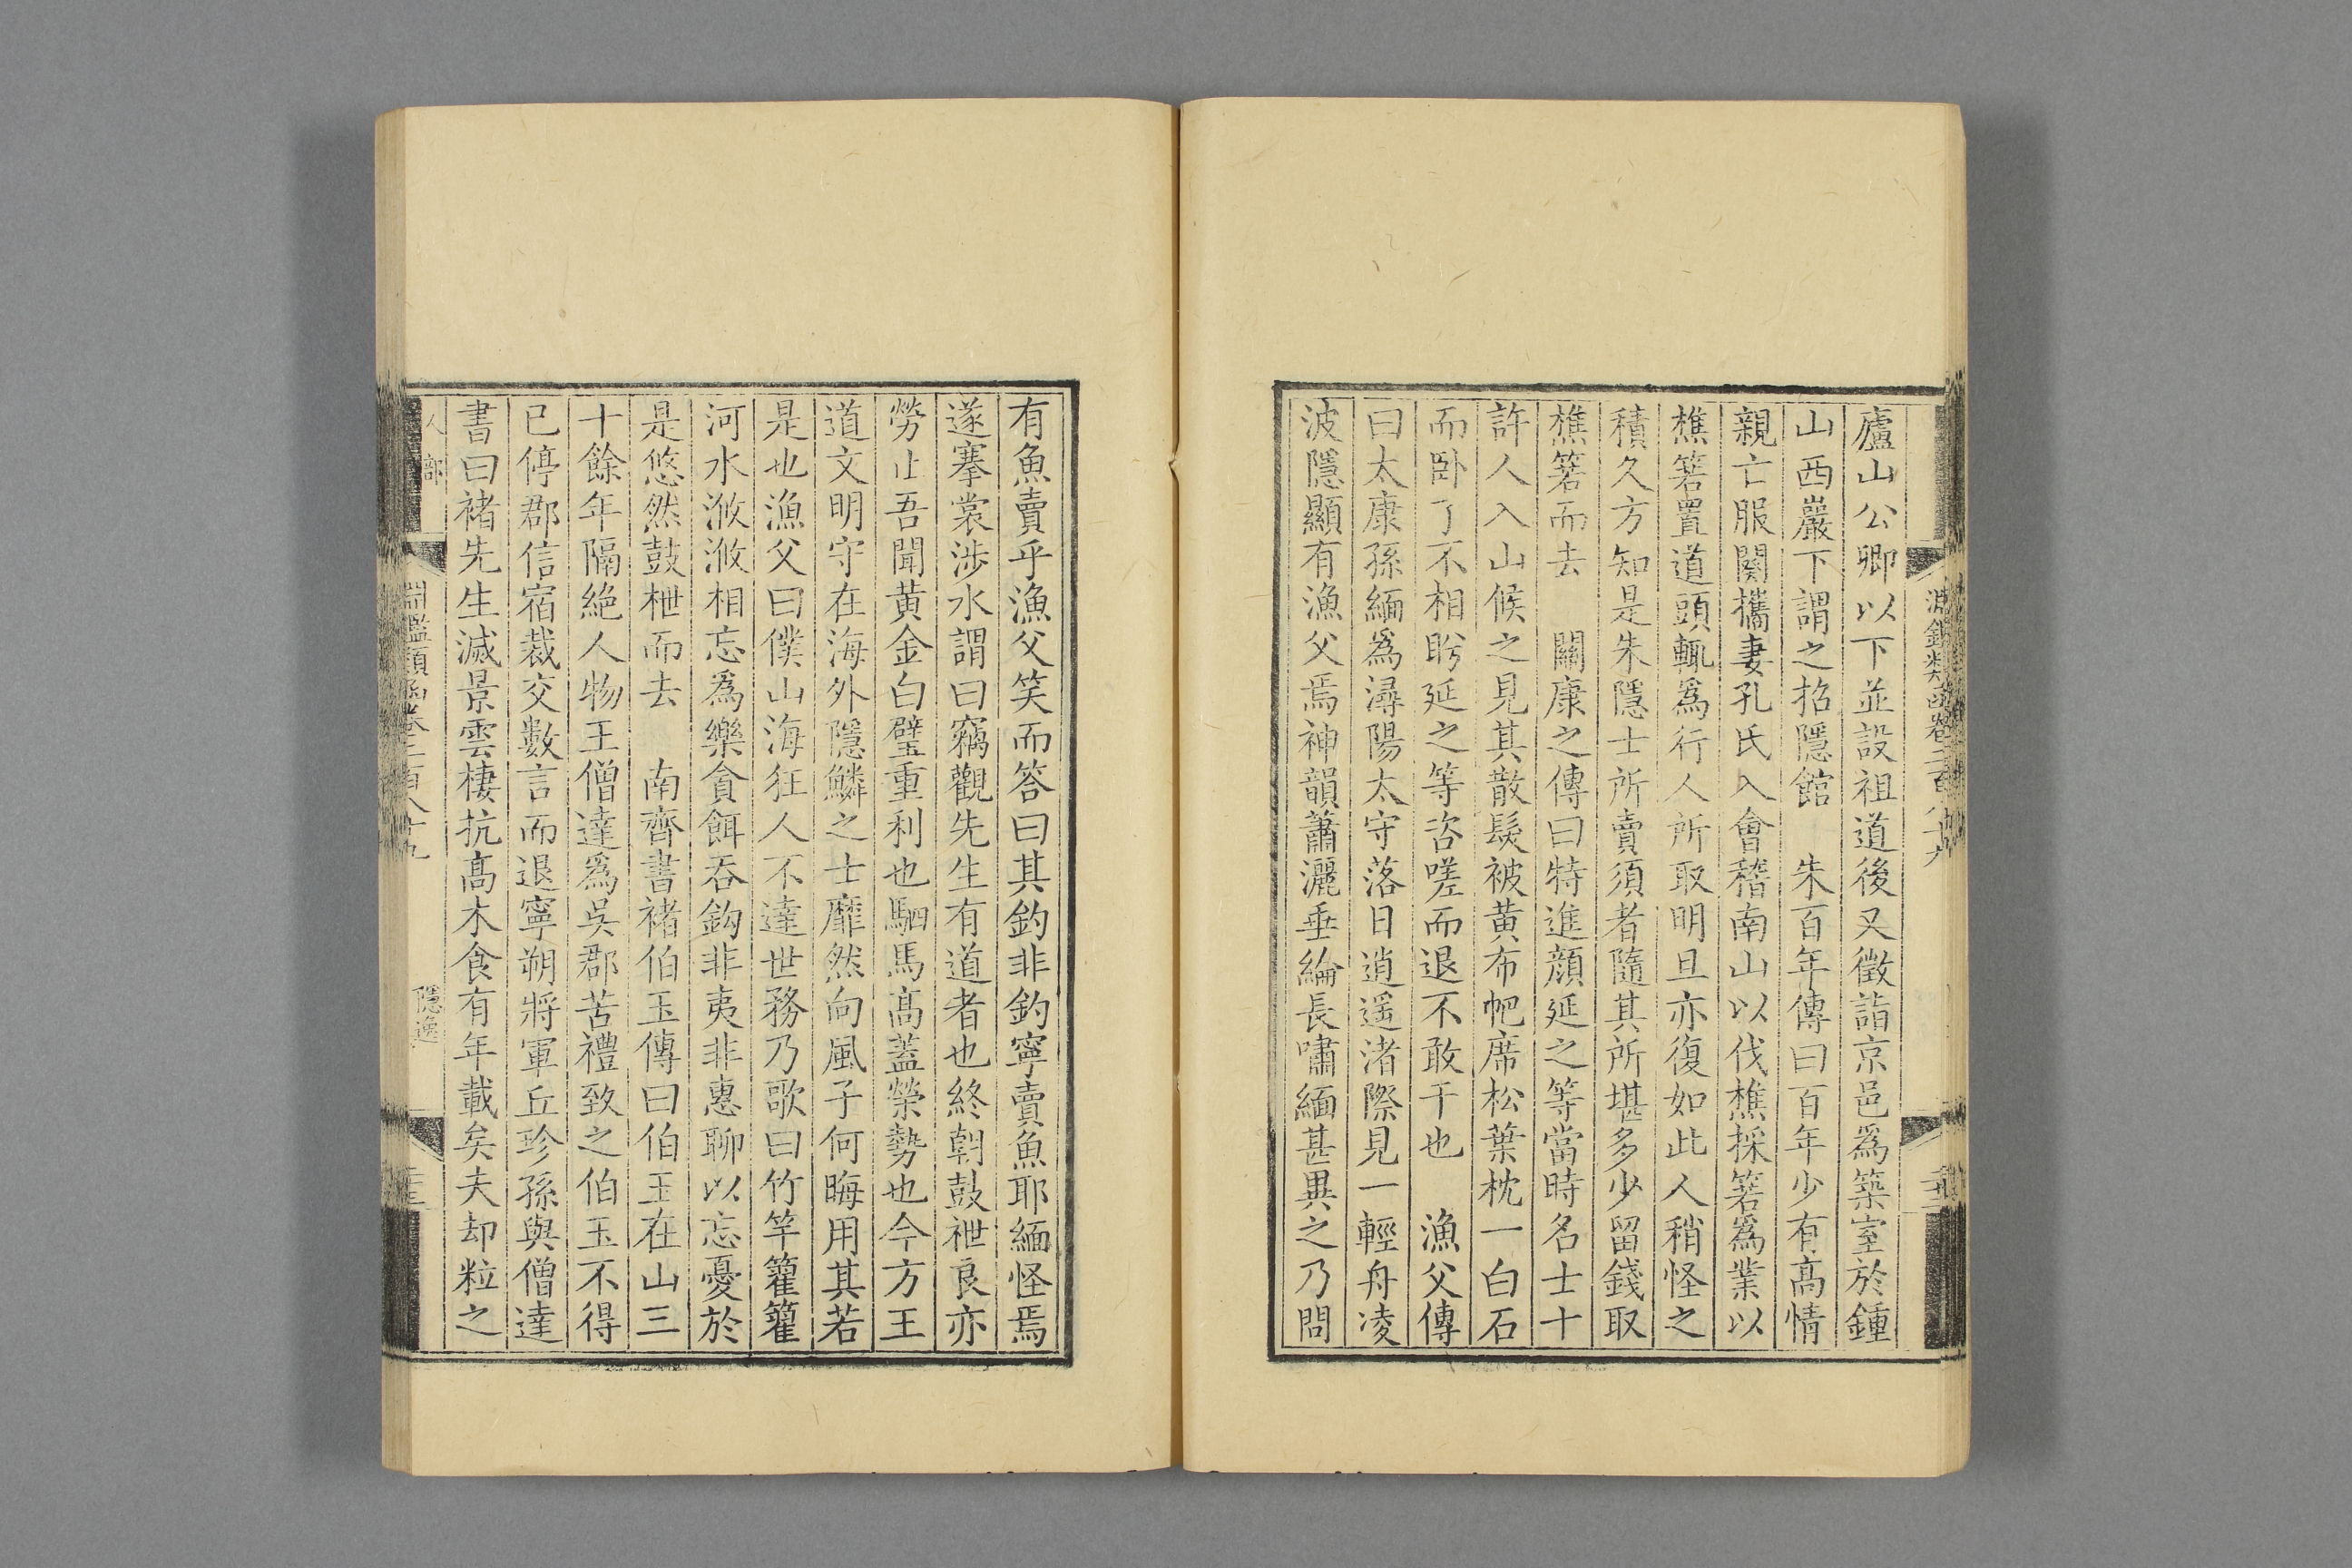 廬山公卿以下並設祖道後又徵詣京邑爲築室於鍾
山西巖下謂之招隱館　朱百年傳曰百年少有高情
親亡服闋攜妻孔氏入會稽南山以伐樵採箬爲業以
樵箬置道頭輒爲行人所取明旦亦復如此人稍怪之
積久方知是朱隱士所賣須者隨其所堪多少留錢取
樵箬而去　關康之傳曰特進顏延之等當時名士十
許人入山候之見其散髮被黃布帊席松葉枕一白石
而卧了不相眄延之等咨嗟而退不敢干也　漁父傳
曰太康孫緬爲潯陽太守落日逍遥渚際見一輕舟凌
波隱顯有漁父焉神韻蕭灑垂綸長嘯緬甚異之乃問
有魚賣乎漁父笑而答曰其釣非釣寧賣魚耶緬怪焉
遂搴裳涉水謂曰竊觀先生有道者也終朝鼓枻良亦
勞止吾聞黃金白璧重利也駟馬高蓋榮勢也今方王
道文明守在海外隱鱗之士靡然向風子何晦用其若
是也漁父曰僕山海狂人不達世務乃歌曰竹竿籊籊
河水浟浟相忘爲樂貪餌吞鈎非夷非惠聊以忘憂於
是悠然鼓枻而去　南齊書褚伯玉傳曰伯玉在山三
十餘年隔絶人物王僧達爲吳郡苦禮致之伯玉不得
已停郡信宿裁交數言而退寧朔將軍丘珍孫與僧達
書曰褚先生滅景雲棲抗高木食有年載矣夫却粒之
人部
淵鑑類函卷二百八十九
隱逸